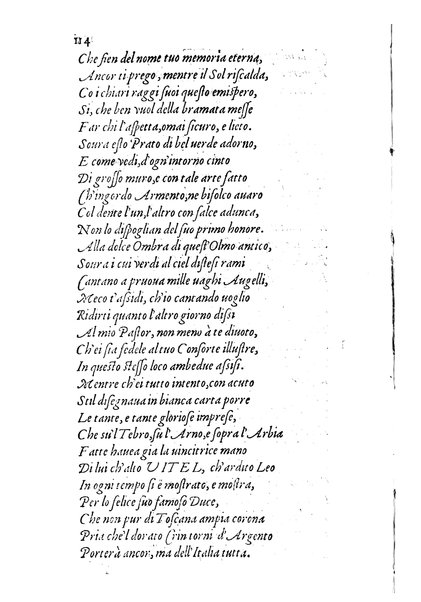 114
Che sien del nome tuo memoria eterna,
Ancor ti prego, mentre il Sol riscalda,
Co i chiari raggi suoi questo emispero,
Si, che ben vuol della bramata messe
Far chi l'aspetta, omai sicuro, e lieto.
Soura esto Prato di bel verde adorno,
E come vedi, d'ogn'intorno cinto
Di grosso muro, e con tale arte fatto
Ch'ingordo Armento, ne bifolco auaro
Col dente l'un, l'altro con falce adunca,
Non lo dispoglian del suo primo honore.
Alla dolce Ombra di quest'Olmo antico,
Soura i cui verdi al ciel distesi rami
Cantano a pruoua mille uaghi Augelli,
Meco t'assidi, ch'io cantando uoglio
Ridirti quanto l'altro giorno dissi
Al mio Pastor, non meno à te diuoto,
Ch'ei sia fedele al tuo Consorte illustre,
In questo stesso loco ambedue assisi.
Mentre ch'ei tutto intento, con acuto
Stil disegnaua in bianca carta porre
Le tante, e tante gloriose imprese,
Che su'l Tebro, su l'Arno, e sopra l'Arbia
Fatte hauea gia la uincitrice mano
Di lui ch'alto VITEL, ch'ardito Leo
In ogni tempo si è mostrato, e mostra,
Per lo felice suo famoso Duce,
Che non pur di Toscana ampia corona
Pria che'l dorato Crin torni d'Argento
Porterà ancor, ma dell'Italia tutta.